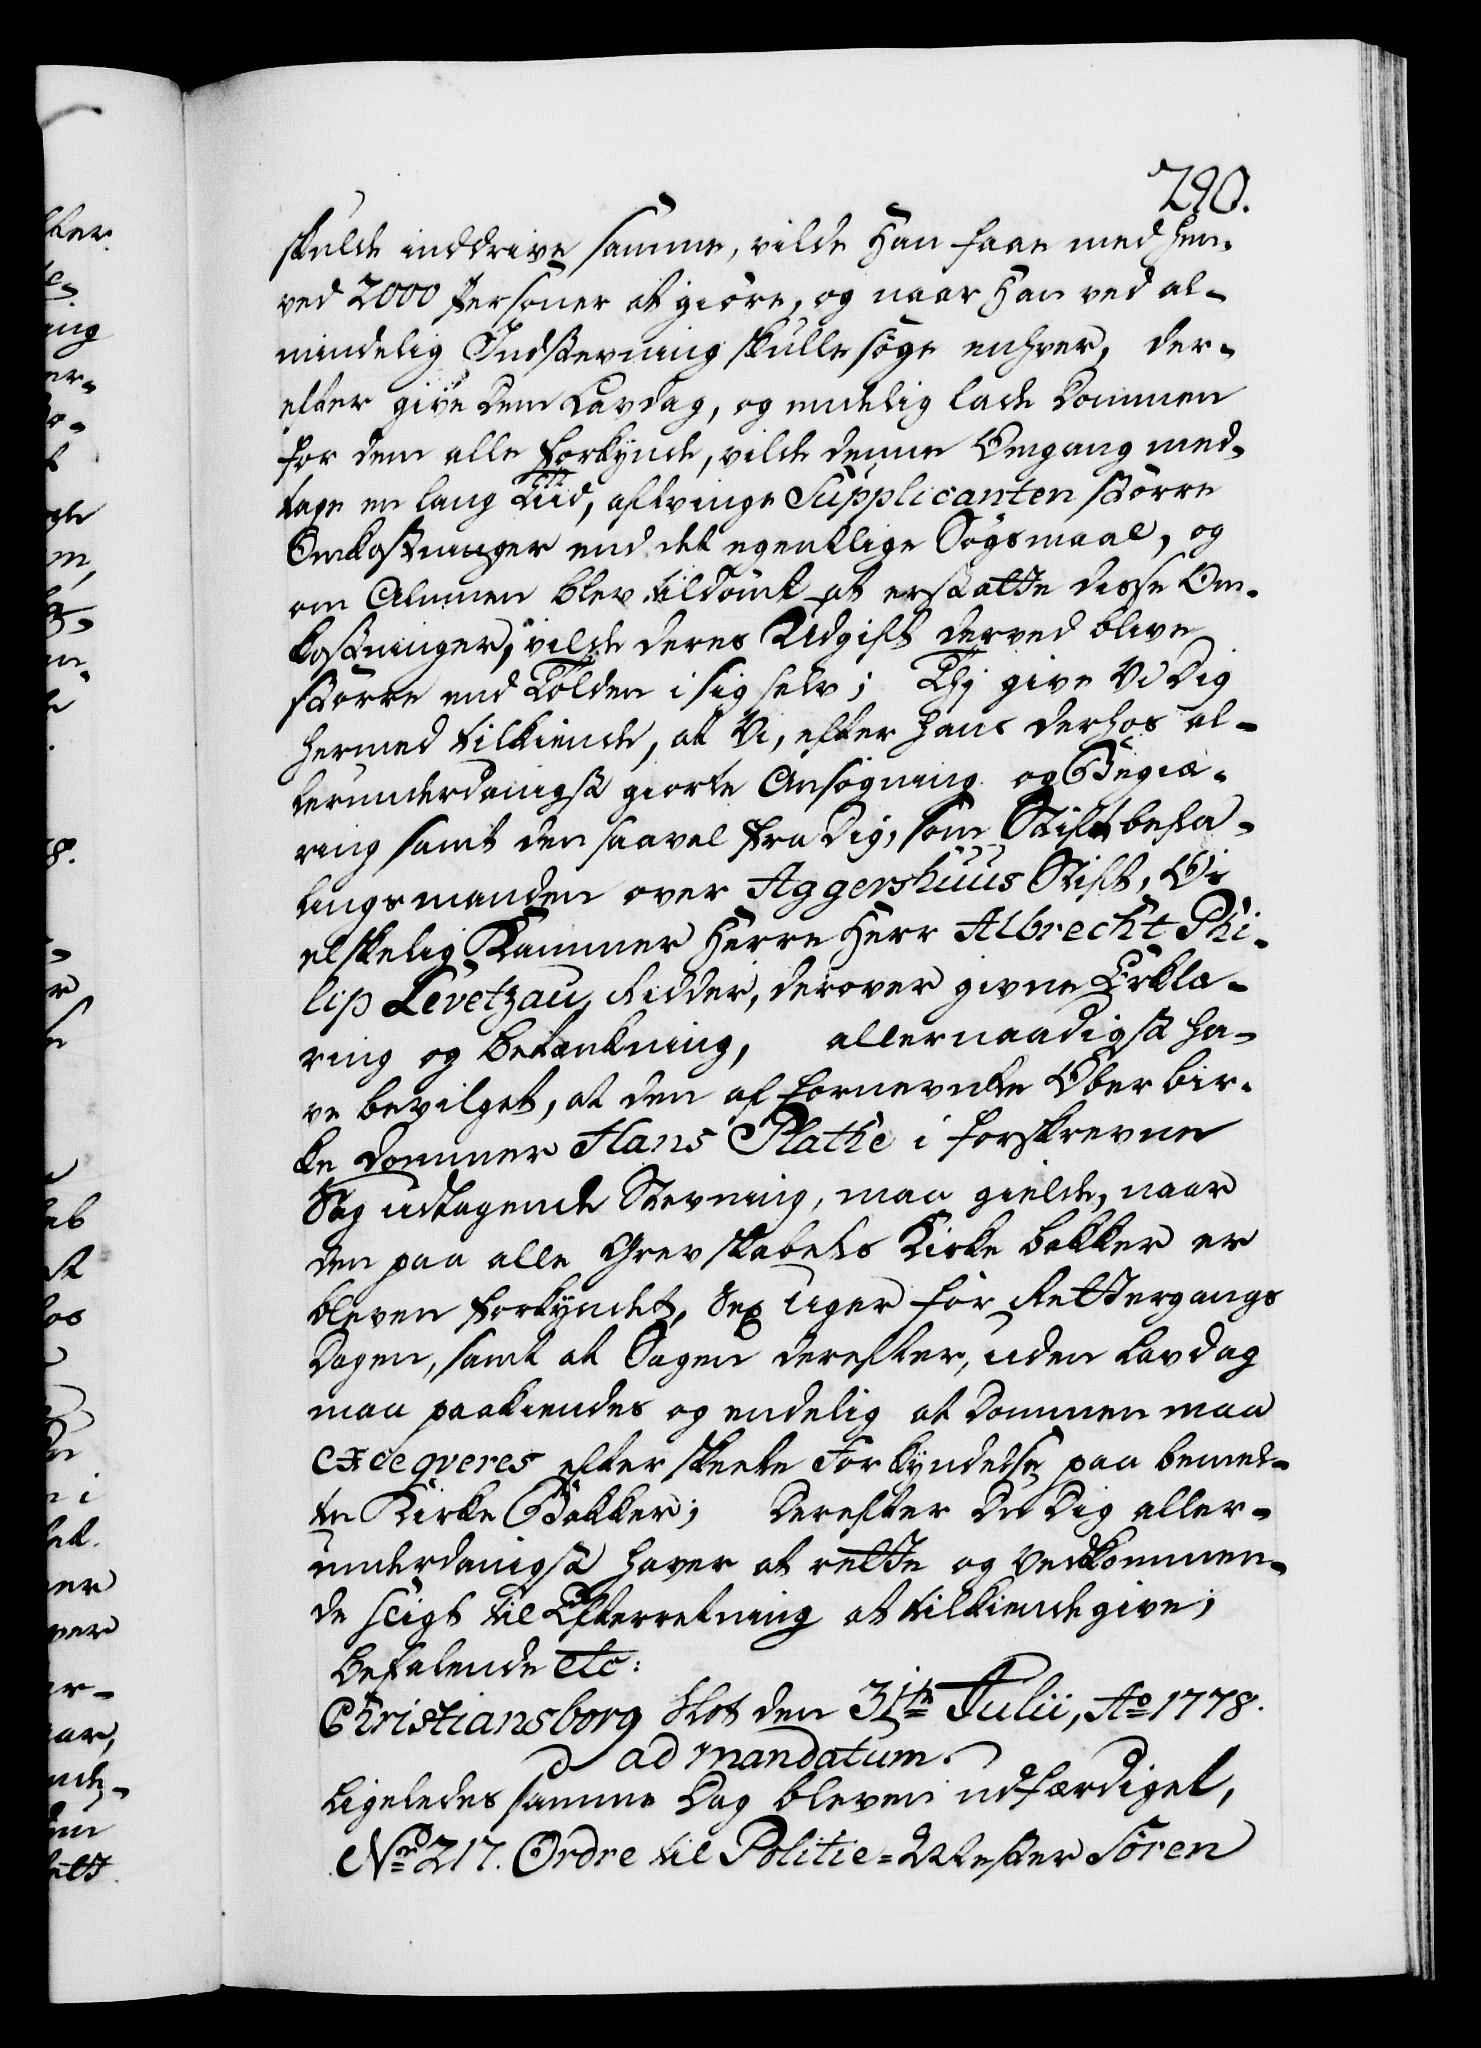 290.
skulde inddrive samme, vilde Han faae med hen-
ved 2000 Personer at giöre, og naar Han ved al-
mindelig Indstevning skulle söge enhver, der-
efter give dem Lavdag, og endelig lade Dommen
for dem alle forkynde, vilde denne Omgang med-
tage en lang Tiid, aftvinge Supplicanten större
Omkostninger end det egentlige Sögsmaal, og
om Almuen blev tildömt at erstatte disse Om-
kostninger, vilde deres Udgift derved blive
större end Tolden i sig selv; Thj give Vi Dig
hermed tilkiende, at Vi, efter hans derhos al-
lerunderdanigst giorte Ansögning og Begiæ-
ring samt den saavel fra Dig, som Stiftbefa-
lingsmanden over Aggershuus Stift, Os
elskelig Kammer Herre Herr Albrecht Phi-
lip Levetzau, Ridder, derover givne Erklæ-
ring og Betænkning, allernaadigst ha-
ve bevilget, at den af fornevnte Ober bir-
ke Dommer Hans Plathe i forskrevne
Sag udtagende Stevning, maa gielde, naar
den paa alle Grevskabets Kirke bakker er
bleven forkyndet, Sex Uger för Rettergangs
Dagen, samt at Sagen derefter, uden Lavdag
maa paakiendes og endelig at Dommen maa
exeqveres efter skeete Forkyndelse paa bemel-
te Kirke Bakker; Derefter Du Dig aller-
underdanigst haver at rette og Vedkommen-
de sligt til Efterretning at tilkiendegive;
Befalende etc:
Christiansborg Slot den 31te Julii, Ao 1778.
ad mandatum.
Ligeledes samme Dag bleven udfærdiget,
No 217. Ordre til Politie-Mester Sören